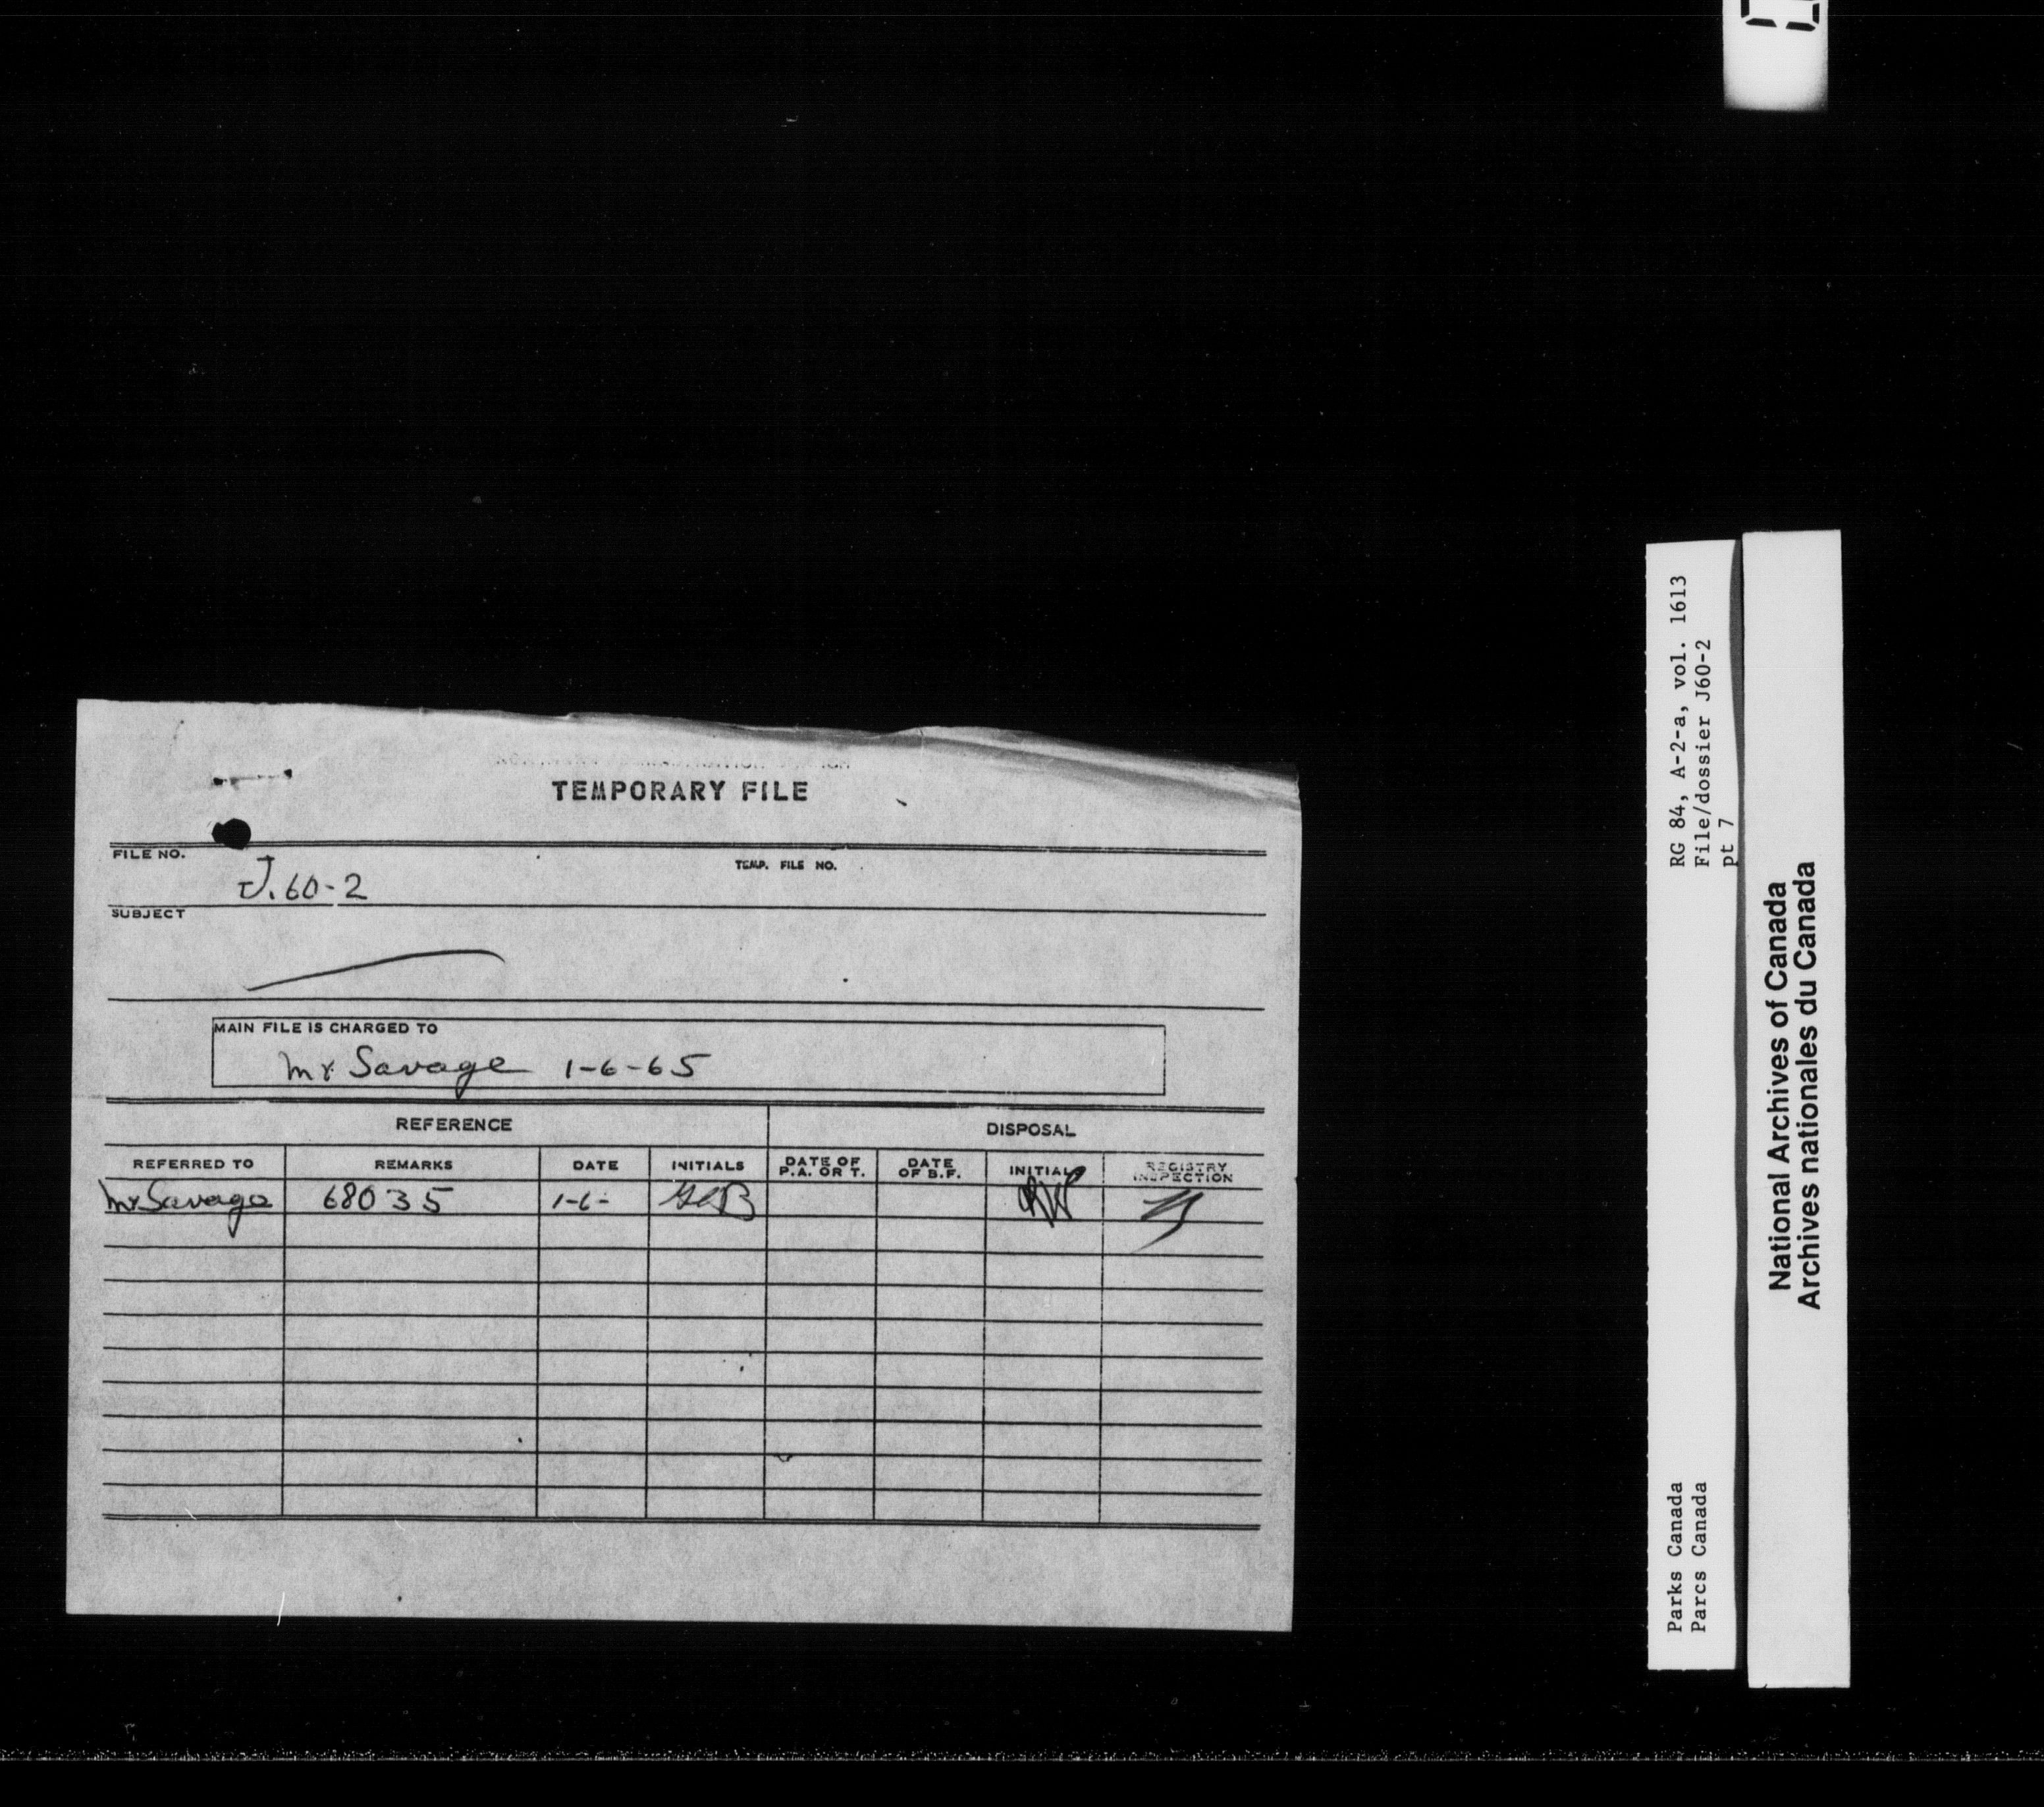 TEMPORARY FILE
FILE NO. TEMP. FILE NO.
J.60-2
SUBJECT
MAIN FILE IS CHARGED TO
Mr Savage 1-6-65
REFERENCE DISPOSAL
REFERRED TO REMARKS DATE INITIALS DATE OF P.A. OR T. DATE OF B.F. INITIALS REGISTRY INSPECTION
Mr Savage 68035 1-6-
RG 84, A-2-a, vol. 1613
File/dossier J60-2
pt 7
Parks Canada
Parcs Canada
National Archives of Canada
Archives nationales du Canada